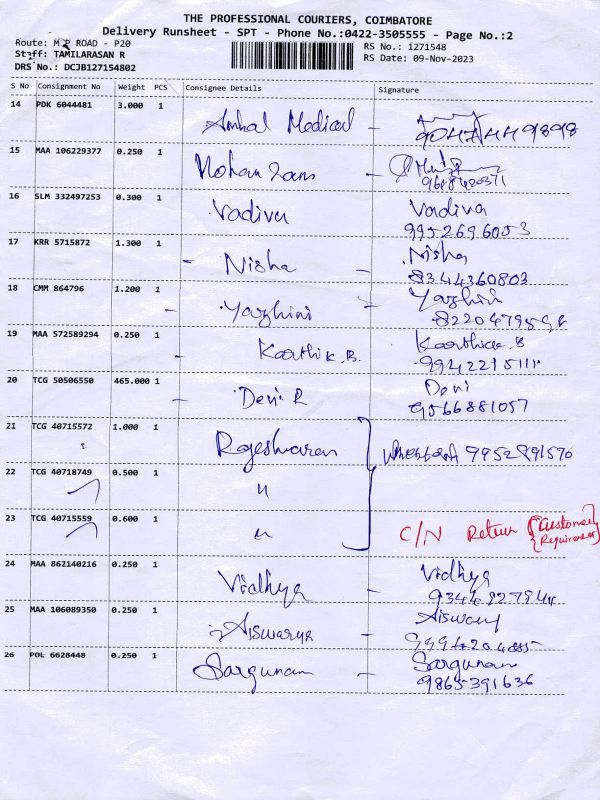 THE PROFESSIONAL COURIERS, COIMBATORE
Delivery Runsheet - SPT - Phone No.:0422-3505555 - Page No.:2
Route: M P ROAD - P20 RS No.: 1271548
Staff: TAMILARASAN R RS Date: 09-Nov-2023
DRS No.: DCJB127154802
S No Consignment No Weight PCS Consignee Details Signature
14 PDK 6044481 3.000 1 Amhal Medical -
15 MAA 106229377 0.250 1 Mohan Ram -
9688420371
16 SLM 332497253 0.300 1 Vadivu Vadiva
9952696053
17 KRR 5715872 1.300 1 - Nisha - Nisha
8344360803
18 CMM 864796 1.200 1 - Yazhini - Yazhini
19 MAA 572589294 0.250 1 - Karthik.B. Karthick.B
20 TCG 50506550 465.000 1 - Devi R Devi
9566881057
21 TCG 40715572 1.000 1 Rajeshwaran 9952891570
22 TCG 40718749 0.500 1 "
23 TCG 40715559 0.600 1 " C/N Return {Customer
Requirement}
24 MAA 862140216 0.250 1 Vidhya - Vidhya
25 MAA 106089350 0.250 1 Aiswarya - Aiswary
26 POL 6628448 0.250 1 Sargunam - Sargunam
9865391636